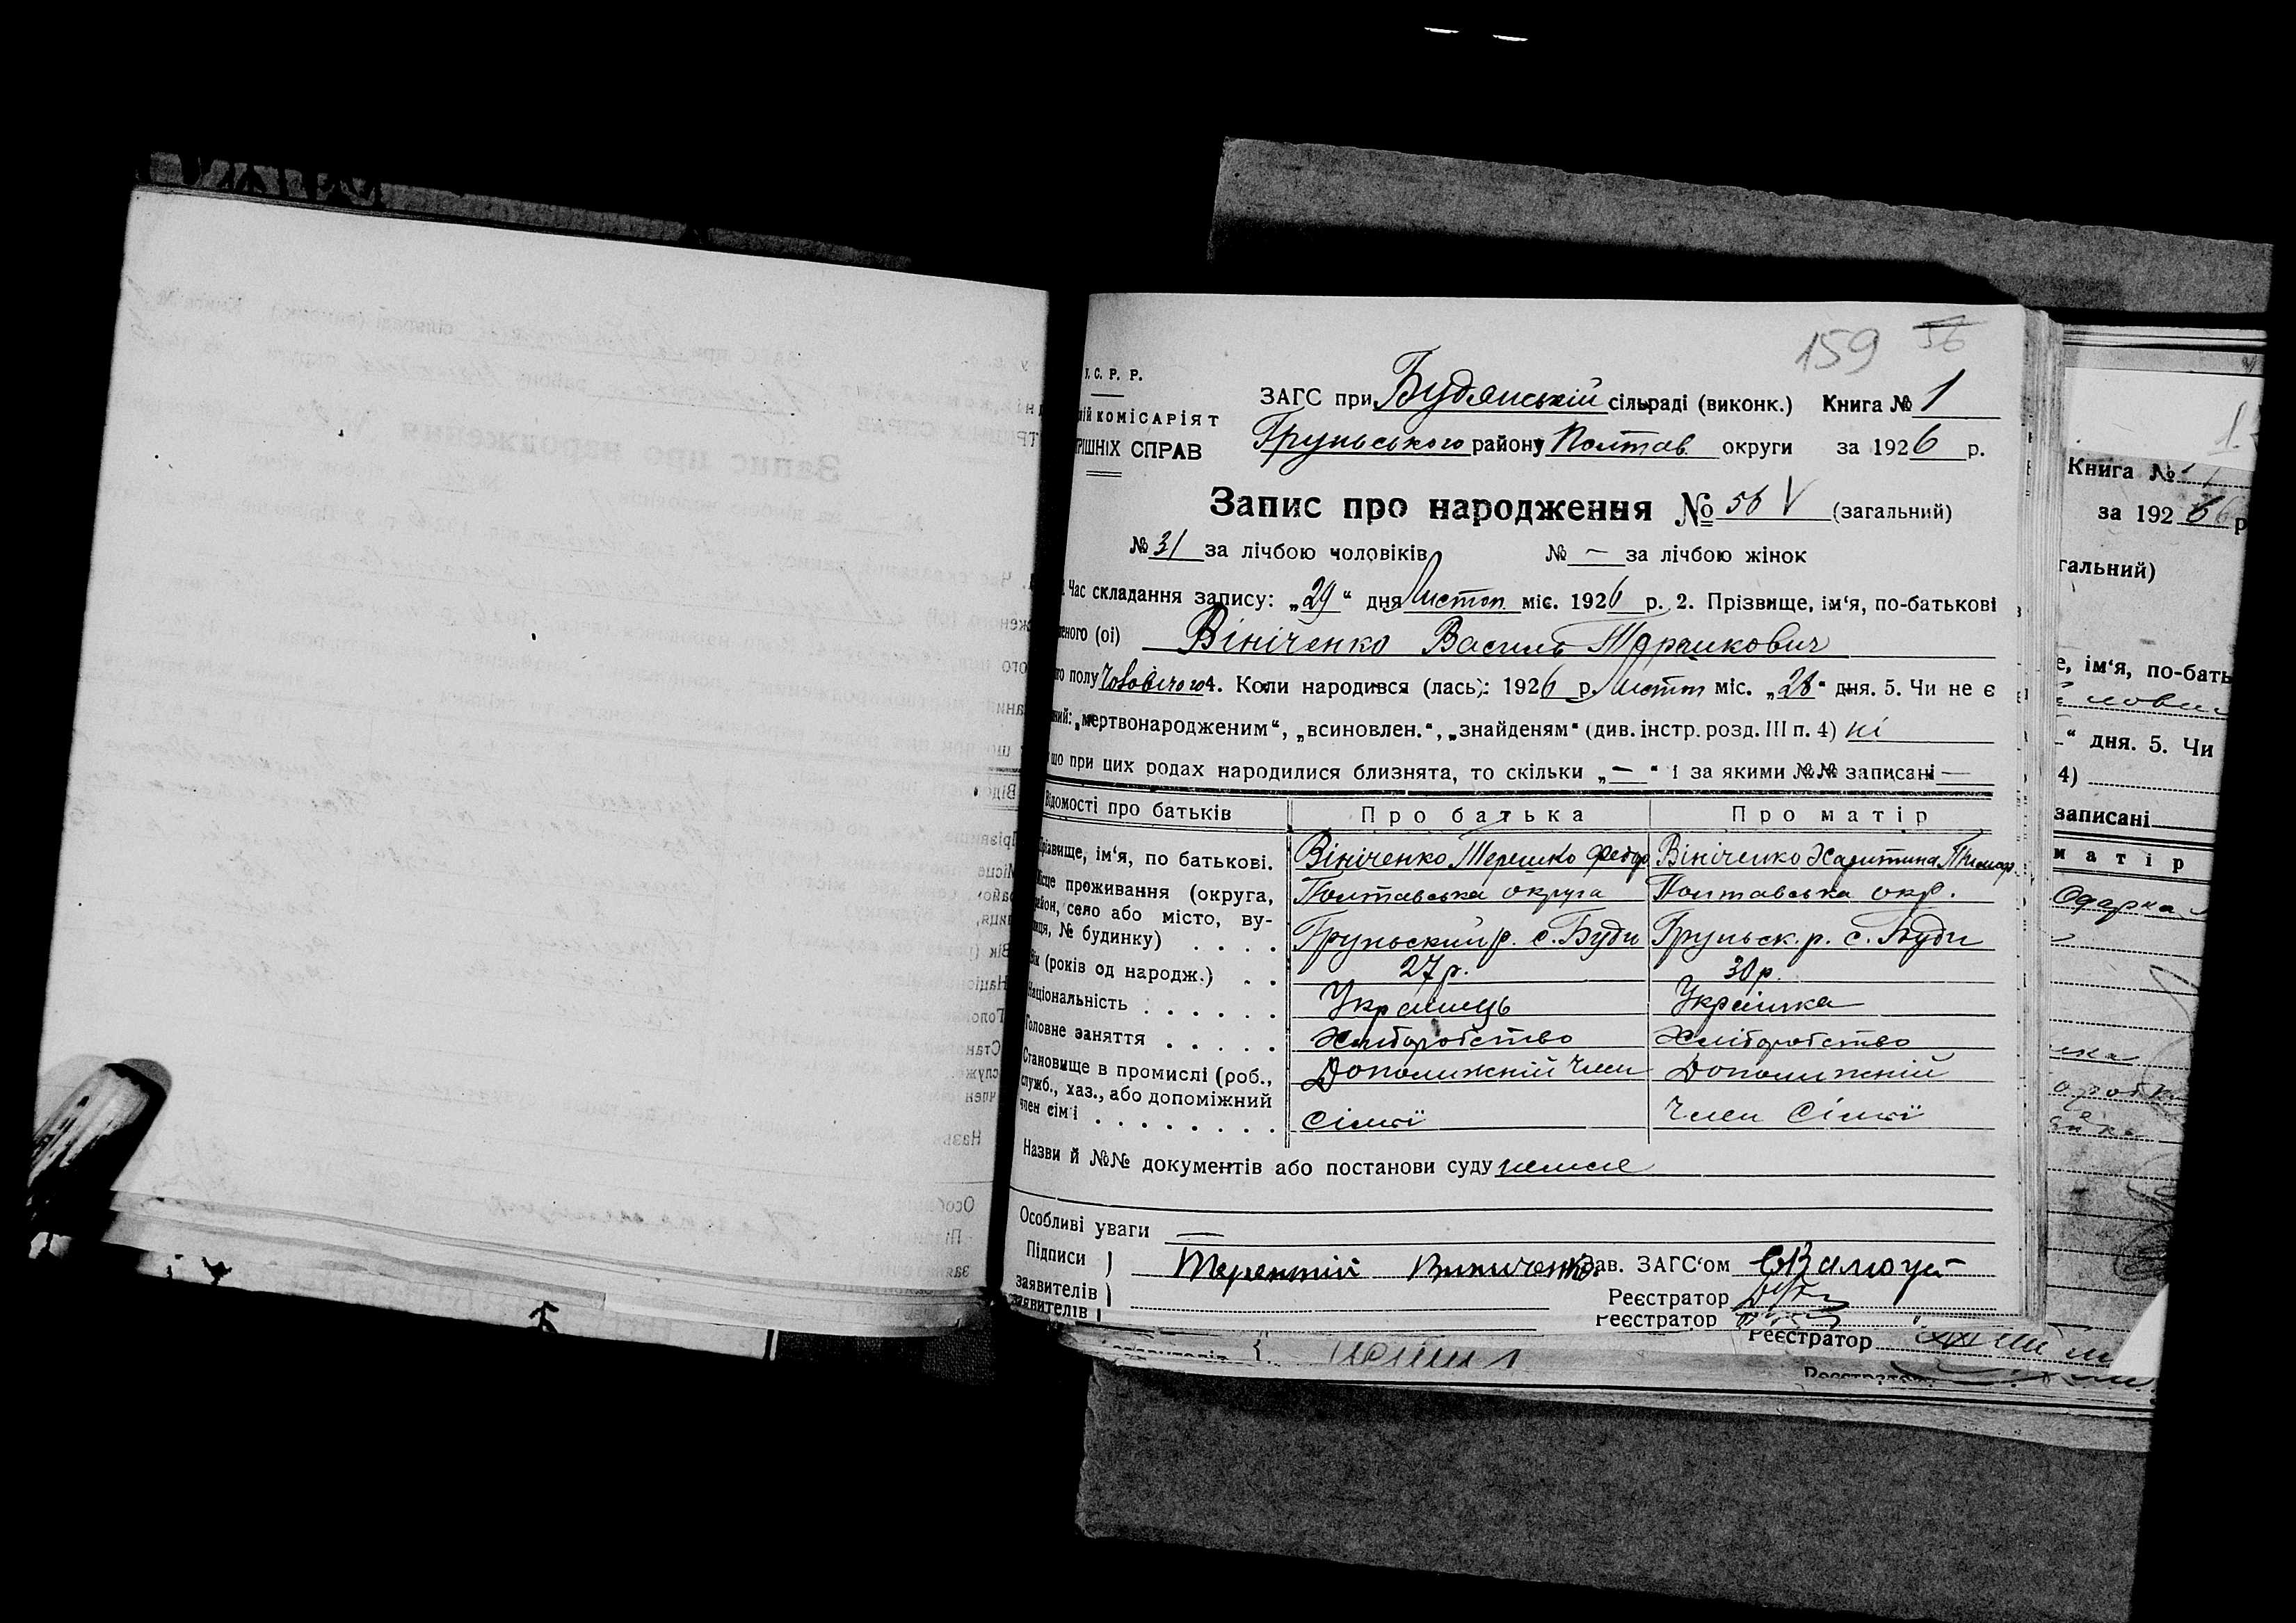 159 56
У. С. Р. Р.
ЗАГС при Будянській сільраді (виконк.) Книга № 1
КОМІСАРІЯТ
Груньського району Полтав. округи за 1926 р.
РІШНІХ СПРАВ
Запис про народження № 56 V (загальний)
№ 31 за лічбою чоловіків № — за лічбою жінок
Час складання запису: „29“ дня Листоп. міс. 1926 р. 2. Прізвище, ім‘я, по-батькові
еного (ої) Вініченко Василь Терешкович
го полу Чоловічого 4. Коли народився (лась): 1926 р. Листоп міс. „28“ дня. 5. Чи не є
ний: „мертвонародженим“, „всиновлен.“, „знайденям“ (див. інстр. розд. III п. 4) ні
що при цих родах народилися близнята, то скільки „—“ і за якими №№ записані —
Відомості про батьків Про батька Про матір
Прізвище, ім‘я, по батькові. Вініченко Терешко Федор. Вініченко Харитина
Місце проживання (округа, Полтавська округа Полтавська окр.
район, село або місто, ву-
лиця, № будинку) . . . . Груньский р. с. Буди Груньск. р. с. Буди
Вік (років од народж.) . . 27 р. 30 р.
Національність . . . . . . Українець Українка
Головне заняття . . . . . Хліборобство Хліборобство
Становище в промислі (роб., Дополижній Член Дополижній
служб., хаз., або допоміжний
член сім‘ї . . . . . . . . Сімї Член Сімї
Назви й №№ документів або постанови суду немає
Особливі уваги —
Підписи } Терентий Виниченко Зав. ЗАГС‘ом
заявителів } Реєстратор
заявителів } Реєстратор
Реєстратор
Книга № 1
за 1926 р
гальний)
е, ім‘я, по-бать
“ дня. 5. Чи
4)
записані
матір
Одарка